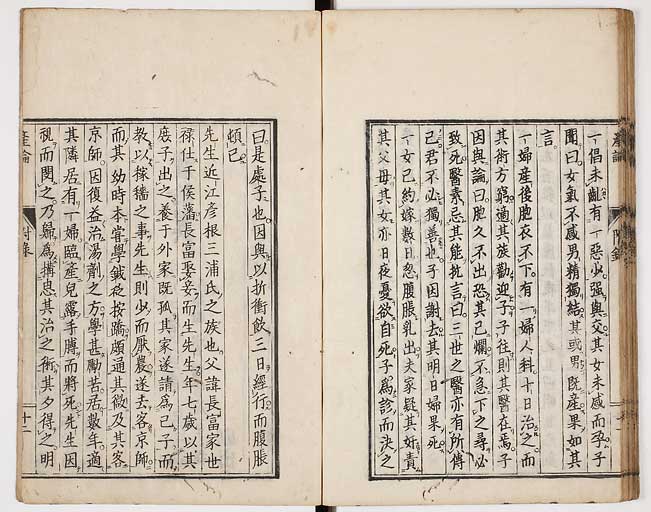 一倡未齔有一惡少强與交其女未感而孕子
聞曰女氣不感男精獨結其或男既産果如其
言
一婦産後胞衣不下有一婦人科十日治之而
其術方窮適其族歡迎子子往則其醫在焉子
因與論曰胞久不出恐其已爛不急下之尋必
致死醫素忌其能抗言曰三世之醫亦有所傳
已君不必獨善也子因謝去其明日婦果死
一女已約嫁數日忽腹脹乳出夫家疑其奸責
其父母其女亦日夜憂欲自死子爲診而決之
産論 附錄
曰是處子也因與以折衝飲三日經行而腹脹
頓已
先生近江彦根三浦氏之族也父諱長富家世
祿仕于侯藩長富娶妾而生先生年七歲以其
庶子出之養于外家既孤其家遂請爲己子而
教以稼穡之事先生則少而厭農遂去客京師
而其幼時本嘗學鍼砭按蹻頗通其微及其客
京師因復益治湯劑之方學甚勵苦居數年適
其隣居有一婦臨産兒露手膊而將死先生因
視而閔之乃歸爲搆思其治之術其夕得之明
産論 附錄 十二